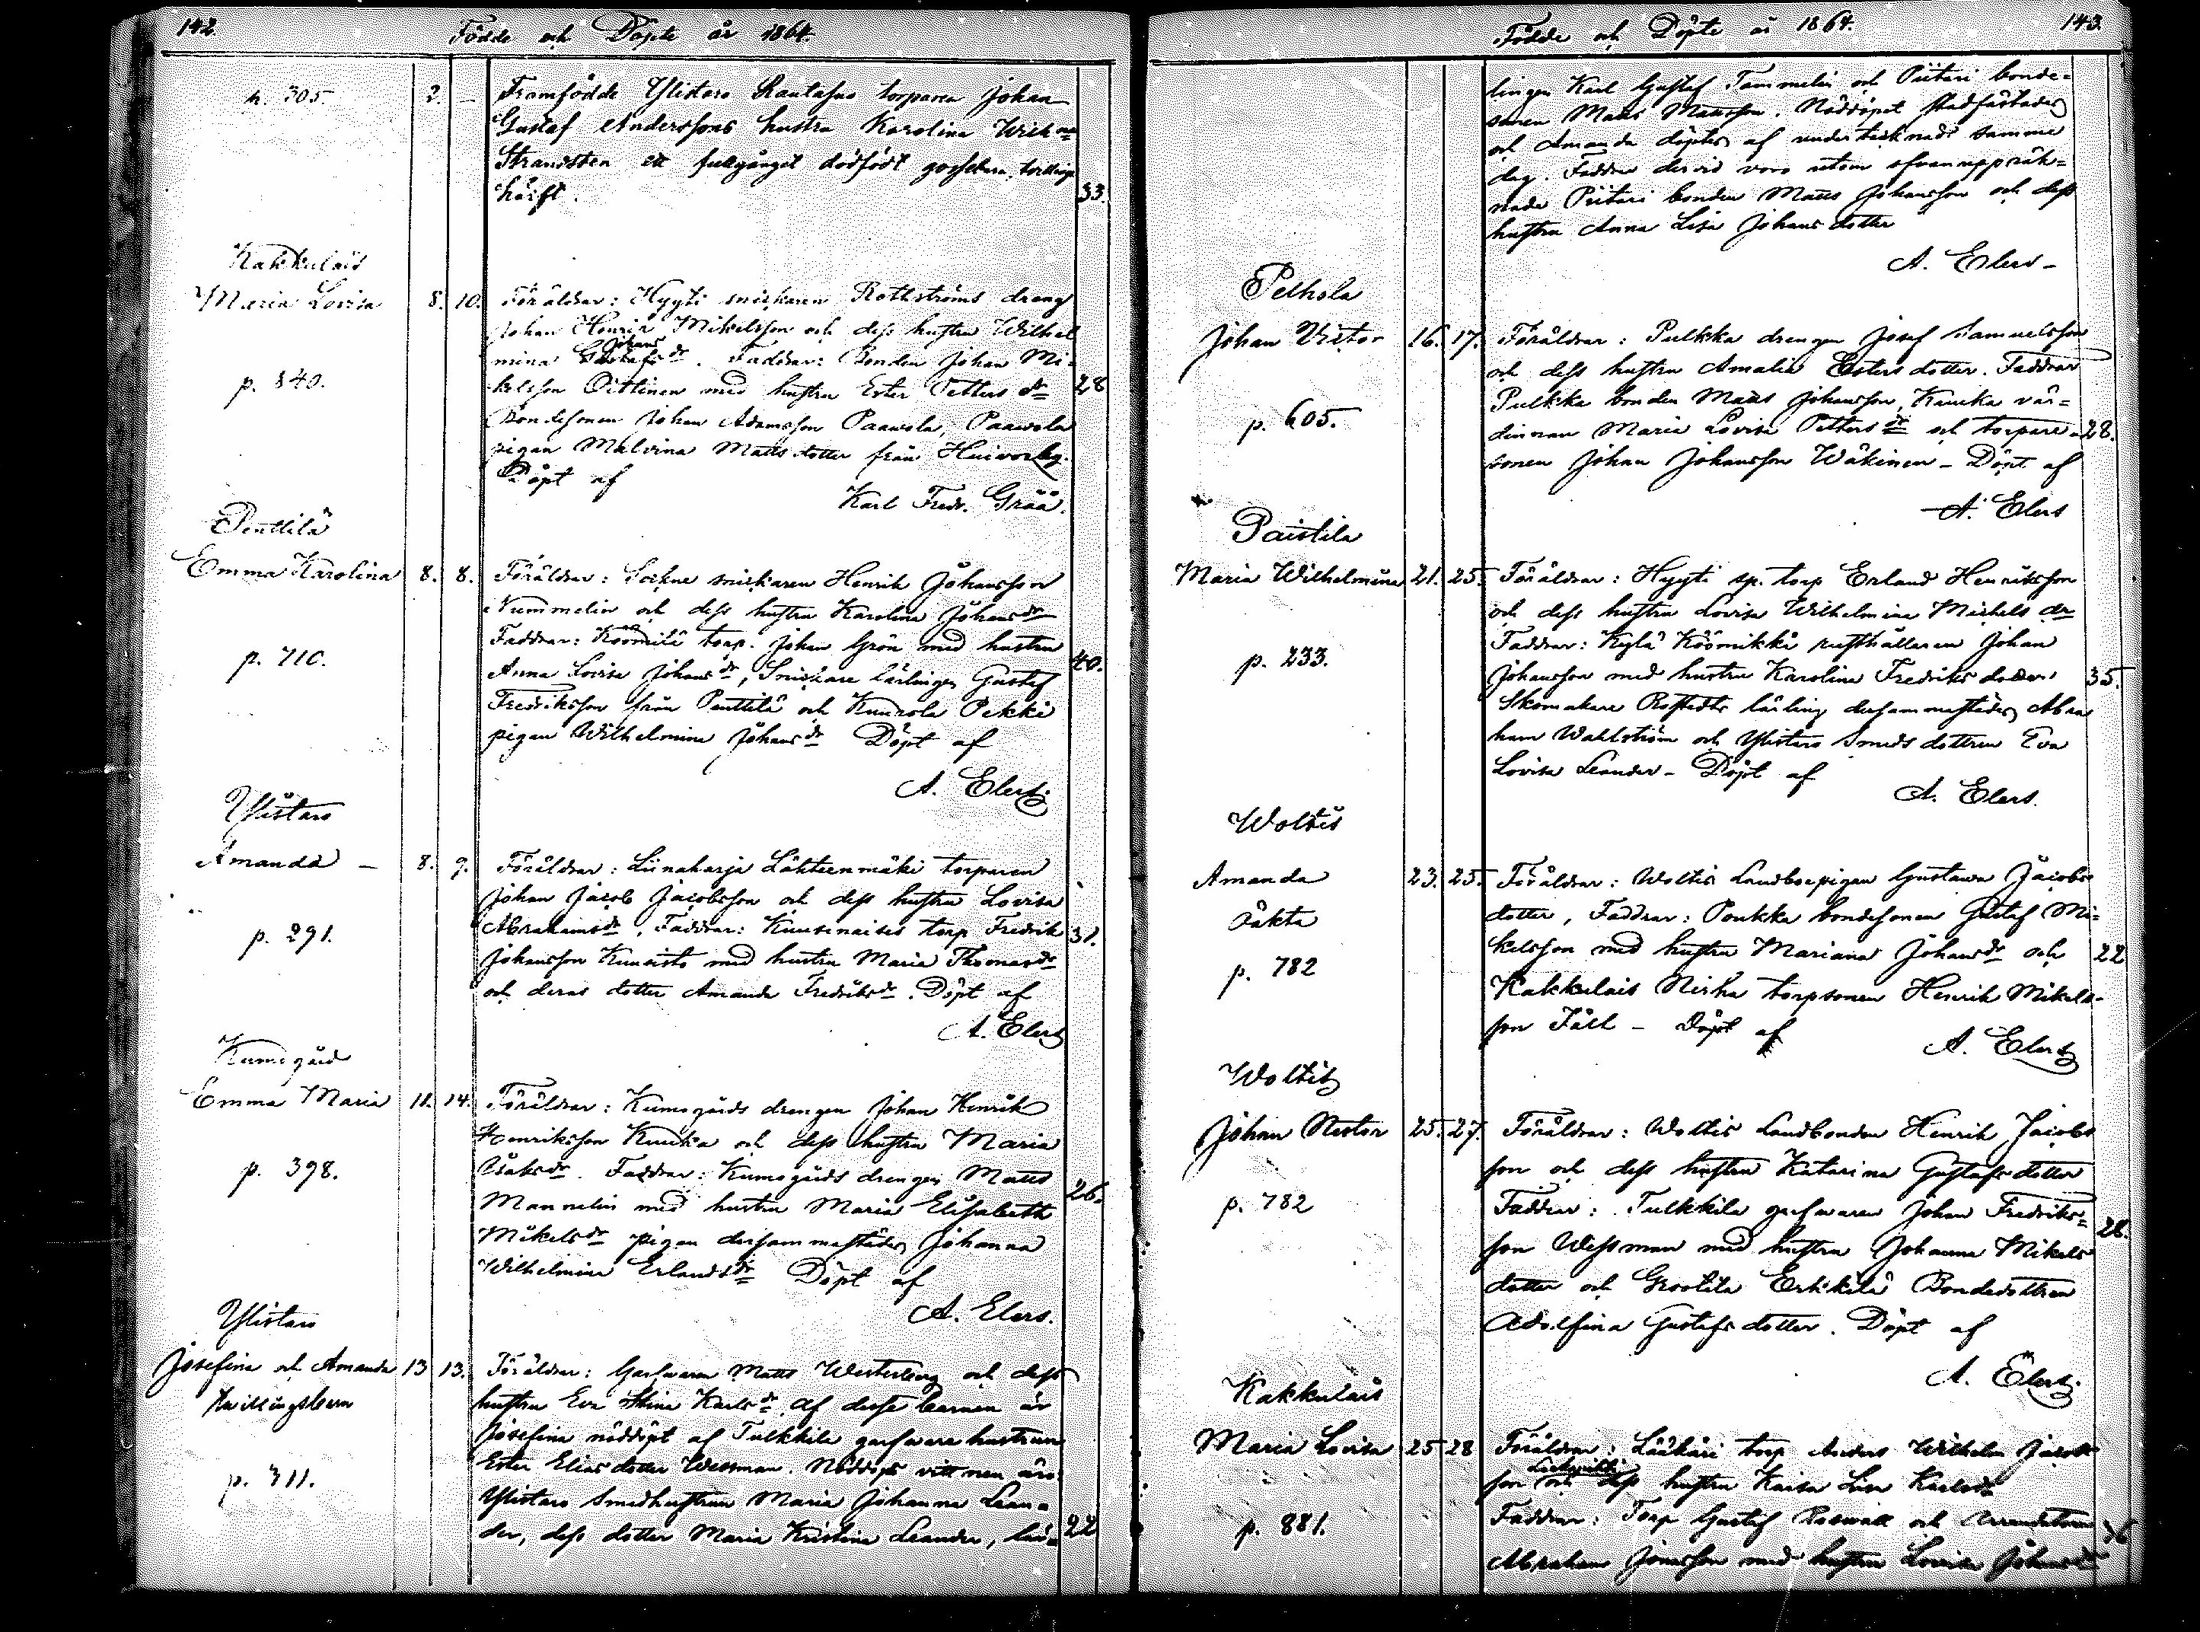 142.
Födde och Döpte år 1864.
h. 305.
2.
Framfödde Ylistaro Rautajus torparen Johan
Gustaf Anderssons hustru Karolina
Strandsten ett fullgånget dödfödt gossebarn
33.
Kakkulais
Maria Lovisa
8. 10.
Föräldrar: Hygti snickaren Rothströms dreng
Johan Henrik Mikelsson och dess hustru Wilhel
mina Johans dr. Faddrar: Bonden Johan Mi-
kelsson Oittinen med hustru Ester Petters dr
p. 840.
28
Bondesonen Johan Adamsson Paawola, Paawola
pigan Malvina Matts dotter från
Döpt af
Karl Fredr. Grää.
Penttilä
Emma Karolina
8. 8.
Föräldrar: Sockne snickaren Henrik Johansson
Nummelin och dess hustru Karolina Johans dr
Faddrar: torp. Johan Grön med hustru
p. 710.
40.
Anna Lovisa Johans dr, Snickare lärlingen Gustaf
Fredriksson från Penttilä och Kuurola Pekki
pigan Wilhelmina Johans dr Döpt af
A. Elers.
Ylistaro
Amanda –
8. 9.
Föräldrar: Liinaharja Lähteenmäki torparen
Johan Jacob Jacobsson och dess hustru Lovisa
Abrahams dr. Faddrar: Kuusinaises torp Fredrik
p. 291.
31.
Johansson Kuusisto med hustru Maria Thomas dr
och deras dotter Amanda Fredriks dr. Döpt af
A. Elers
Kumogård
Emma Maria
11. 14.
Föräldrar: Kumogårds drengen Johan Henrik
Henriksson Kuuka och dess hustru Maria
p. 398.
Isaks dr. Faddrar: Kumogårds drengen Matts
Mannelin med hustru Maria Elisabeth
26.
Mikels dr pigan dersammastädes Johanna
Wilhelmina Erlands dr Döpt af
A. Elers.
Ylistaro
Josefina och Amanda
13 13.
Föräldrar: Garfvaren Matts Westerberg och dess
tvillingsbarn
hustru Eva Stina Karls dr. Af desse barnen är
Josefina nöddöpt af Tulkkila garfvare hustrun
Ester Elias dotter Wessman. Nöddops vittnen äro
p. 311.
Ylistaro Smedhustrun Maria Johanna Lean-
der, dess dotter Maria Kristina Leander, lär-
22
Födde och Döpte år 1864.
143.
lingen Karl Gustaf Tammelin och Piitari bonde-
sonen Matts Mattsson. Nöddopet stadfästades
och Amanda döptes af undertecknad samma
dag. Faddrar dervid voro utom ofvanuppräk-
nade Piitari bonden Matts Johansson och dess
hustru Anna Lisa Johans dotter
A. Elers –
Pelhola
Johan Victor
16. 17.
Föräldrar: Pulkka drengen Josef Samuelsson
och dess hustru Amalia Esters dotter. Faddrar
Pulkka bonden Matts Johansson, Kuuka vär-
p. 605.
dinnan Maria Lovisa Petters dr och torpare-
28.
sonen Johan Johansson Wäkinen – Döpt af
A. Elers
Paistila
Maria Wilhelmina
21. 25.
Föräldrar: Hygti sp. torp Erland Henriksson
och dess hustru Lovisa Wilhelmina Mickels dr
Faddrar: Kylä Köömikkä rusthållaren Johan
p. 233.
Johansson med hustru Karolina Fredriks dotter,
35.
Skomakare Rostedts lärling dersammastädes Abra
ham Wahlström och Ylistaro Smeds dottren Eva
Lovisa Leander – Döpt af
A. Elers.
Woltis
Amanda
23. 25.
Föräldrar: Woltis Landboepigan Gustava Jacobs
oäkta
dotter, Faddrar: Poukka bondesonen Gustaf Mi-
kelsson med hustru Mariana Johans dr och
22
p. 782
Kakkulais Niska torpsonen Henrik Mikels-
son Fäll – Döpt af
A. Elers
Woltis
Johan Nestor
25. 27.
Föräldrar: Woltis Landbonden Henrik Jacobs
son och dess hustru Katarina Gustafs dotter
p. 782
Faddrar: Tulkkila garfvaren Johan Fredriks-
26.
son Wessman med hustru Johanna Mikels
dotter och Grootila Erkkilä Bondedottren
Adolfina Gustafs dotter. Döpt af
A. Elers.
Kakkulais
Maria Lovisa
25 28
Föräldrar: Lääkäri torp Anders Wilhelm Jacobs
son och dess hustru Kaisa Lisa Karls dr
p. 881.
Faddrar: Torp Gustaf Roswall och Arrendatorn
36
Abraham Jonasson med hustru Lovisa Johans dr